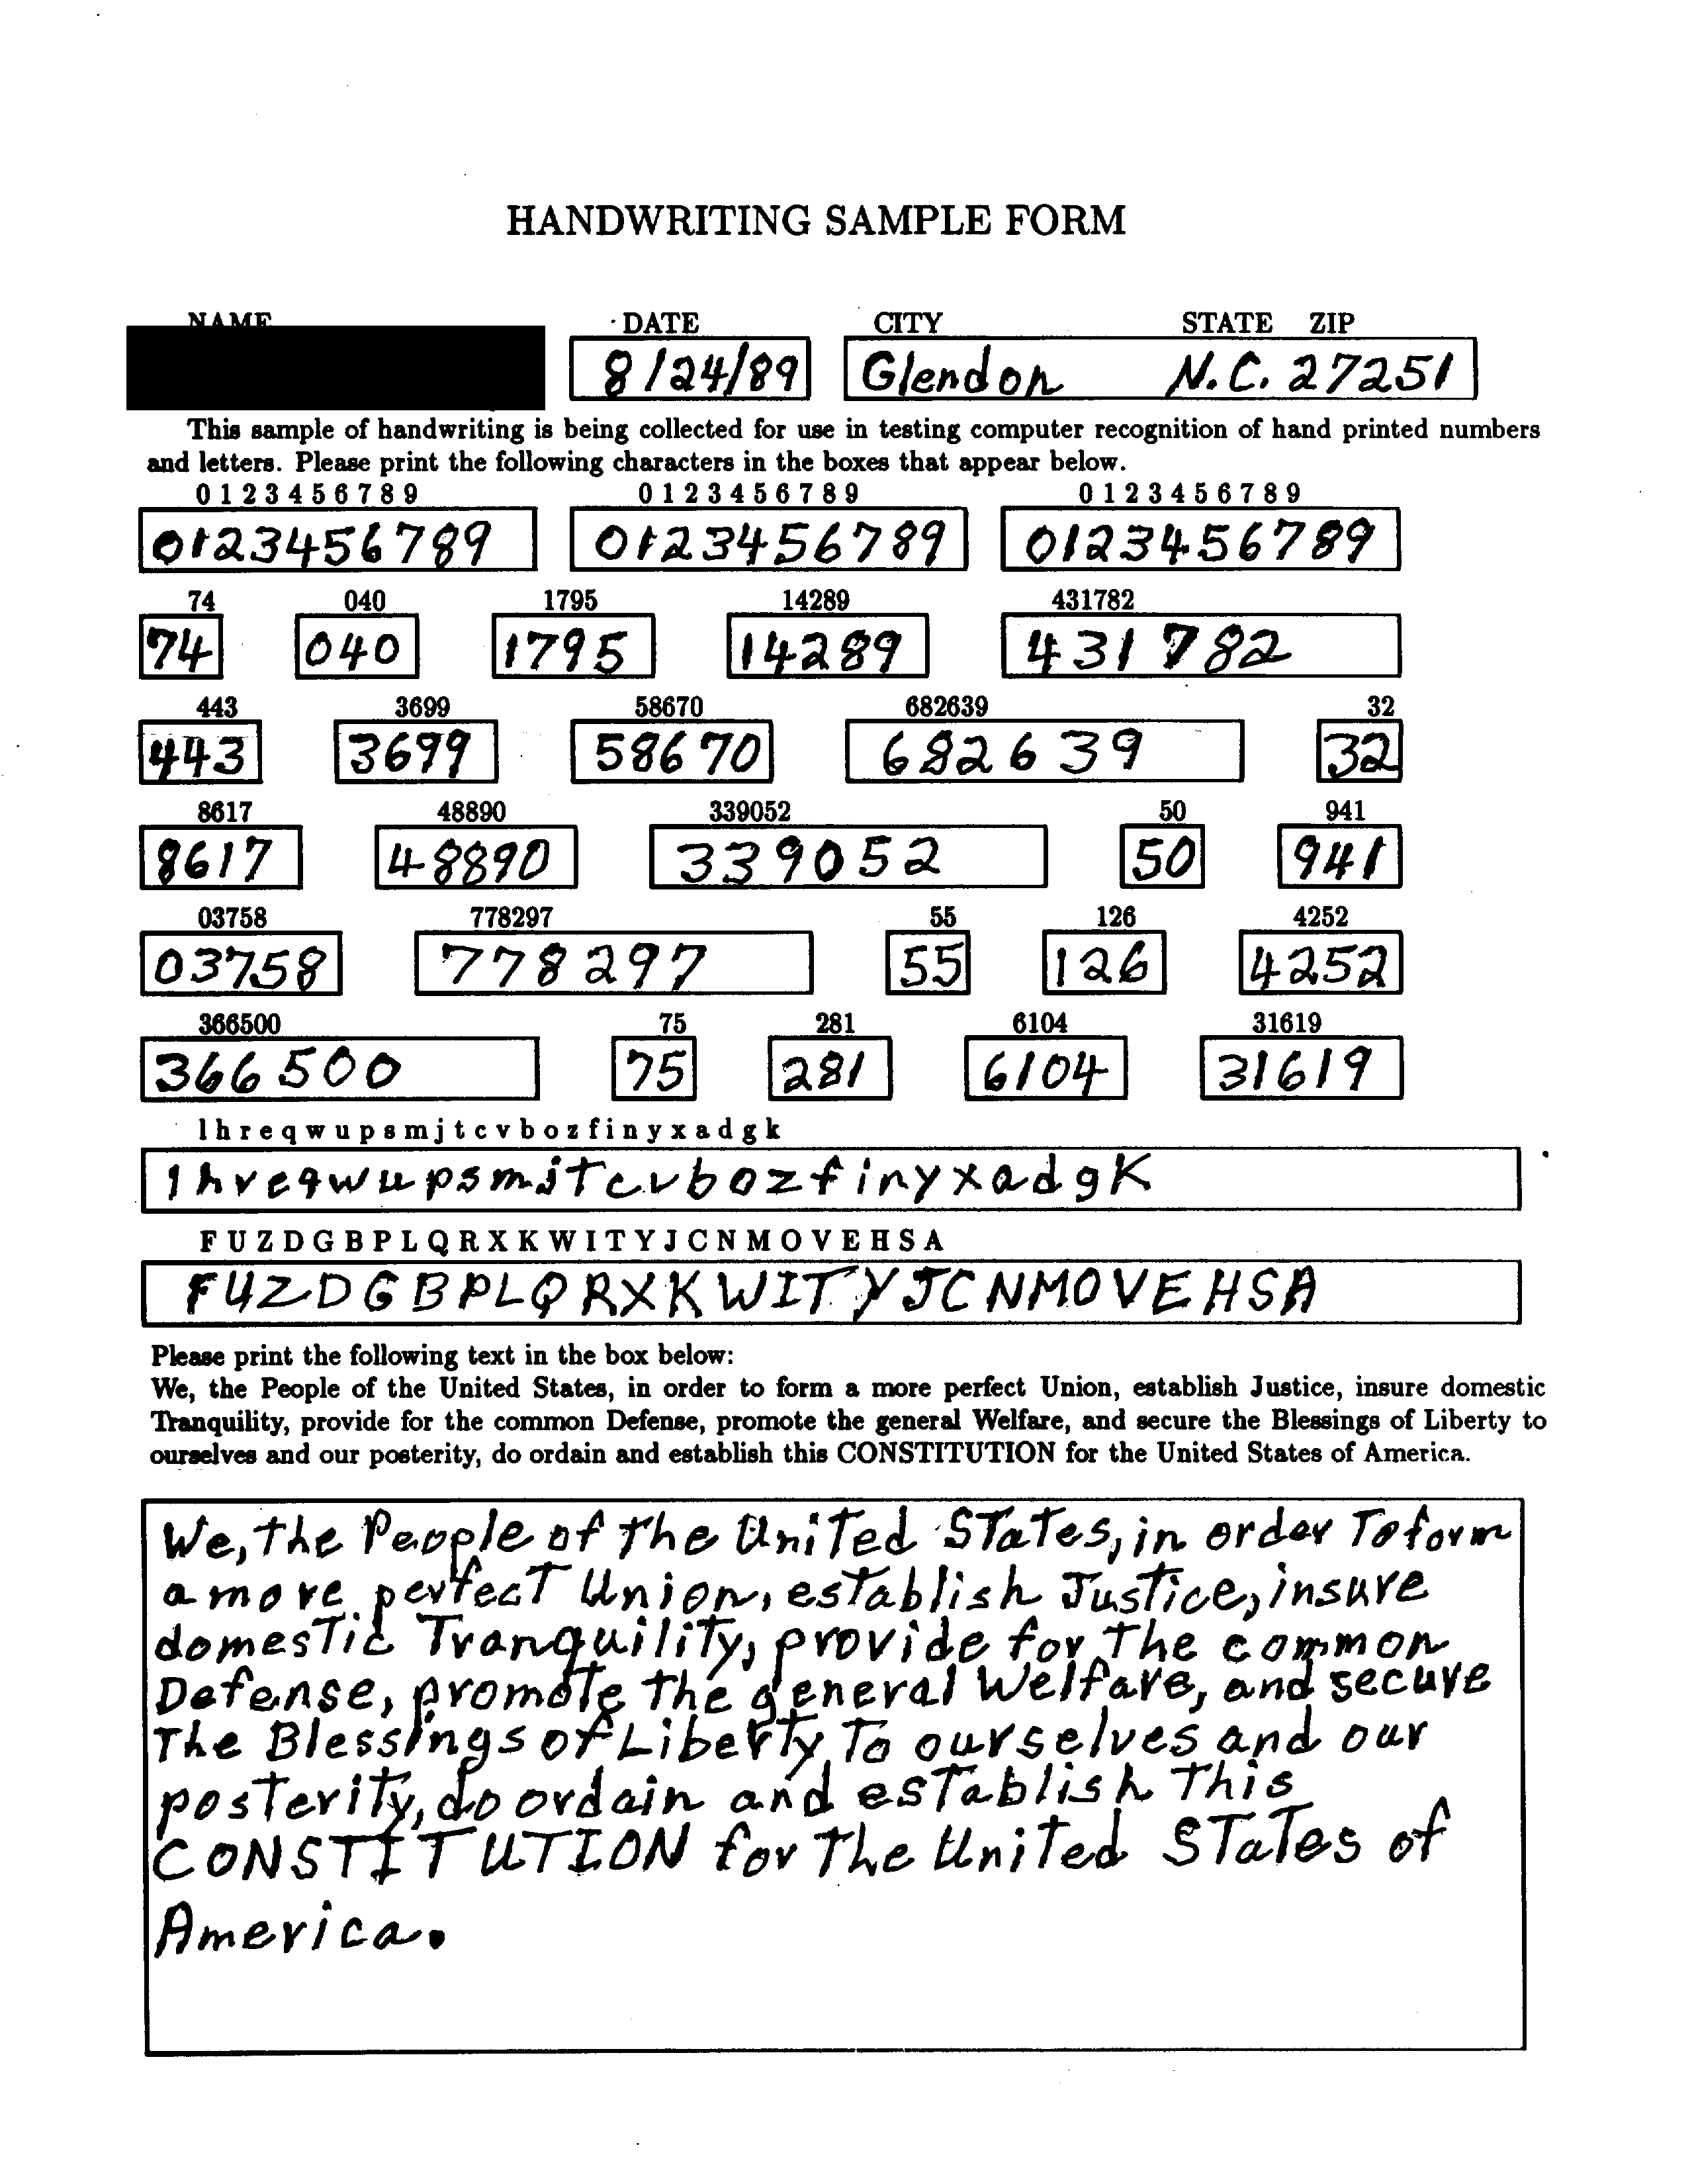 HANDWRITING SAMPLE FORM
NAME DATE CITY STATE ZIP
8/24/89 Glendon N.C. 27251
This sample of handwriting is being collected for use in testing computer recognition of hand printed numbers
and letters. Please print the following characters in the boxes that appear below.
0 1 2 3 4 5 6 7 8 9 0 1 2 3 4 5 6 7 8 9 0 1 2 3 4 5 6 7 8 9
0123456789 0123456789 0123456789
74 040 1795 14289 431782
74 040 1795 14289 431782
443 3699 58670 682639 32
443 3699 58670 682639 32
8617 48890 339052 50 941
8617 48890 339052 50 941
03758 778297 55 126 4252
03758 778297 55 126 4252
366500 75 281 6104 31619
366500 75 281 6104 31619
l h r e q w u p s m j t c v b o z f i n y x a d g k
lhreqwupsmjtcvbozfinyxadgK
F U Z D G B P L Q R X K W I T Y J C N M O V E H S A
FUZDGBPLQRXKWITYJCNMOVEHSA
Please print the following text in the box below:
We, the People of the United States, in order to form a more perfect Union, establish Justice, insure domestic
Tranquility, provide for the common Defense, promote the general Welfare, and secure the Blessings of Liberty to
ourselves and our posterity, do ordain and establish this CONSTITUTION for the United States of America.
We, the People of the United States, in order to form
a more perfect Union, establish Justice, insure
domestic Tranquility, provide for the common
Defense, promote the general Welfare, and secure
The Blessings of Liberty To ourselves and our
posterity, do ordain and establish this
CONSTITUTION for the United States of
America.